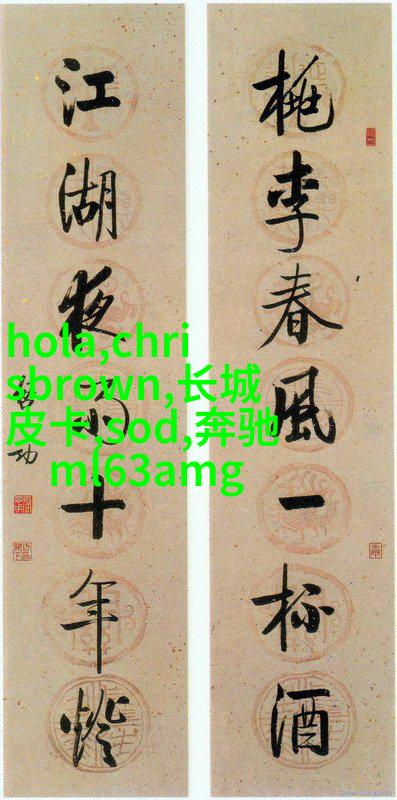 桃李春風一杯酒
江湖夜雨十年燈
啓功
hola,chri
sbrown,长城
皮卡,sod,奔驰
ml63amg